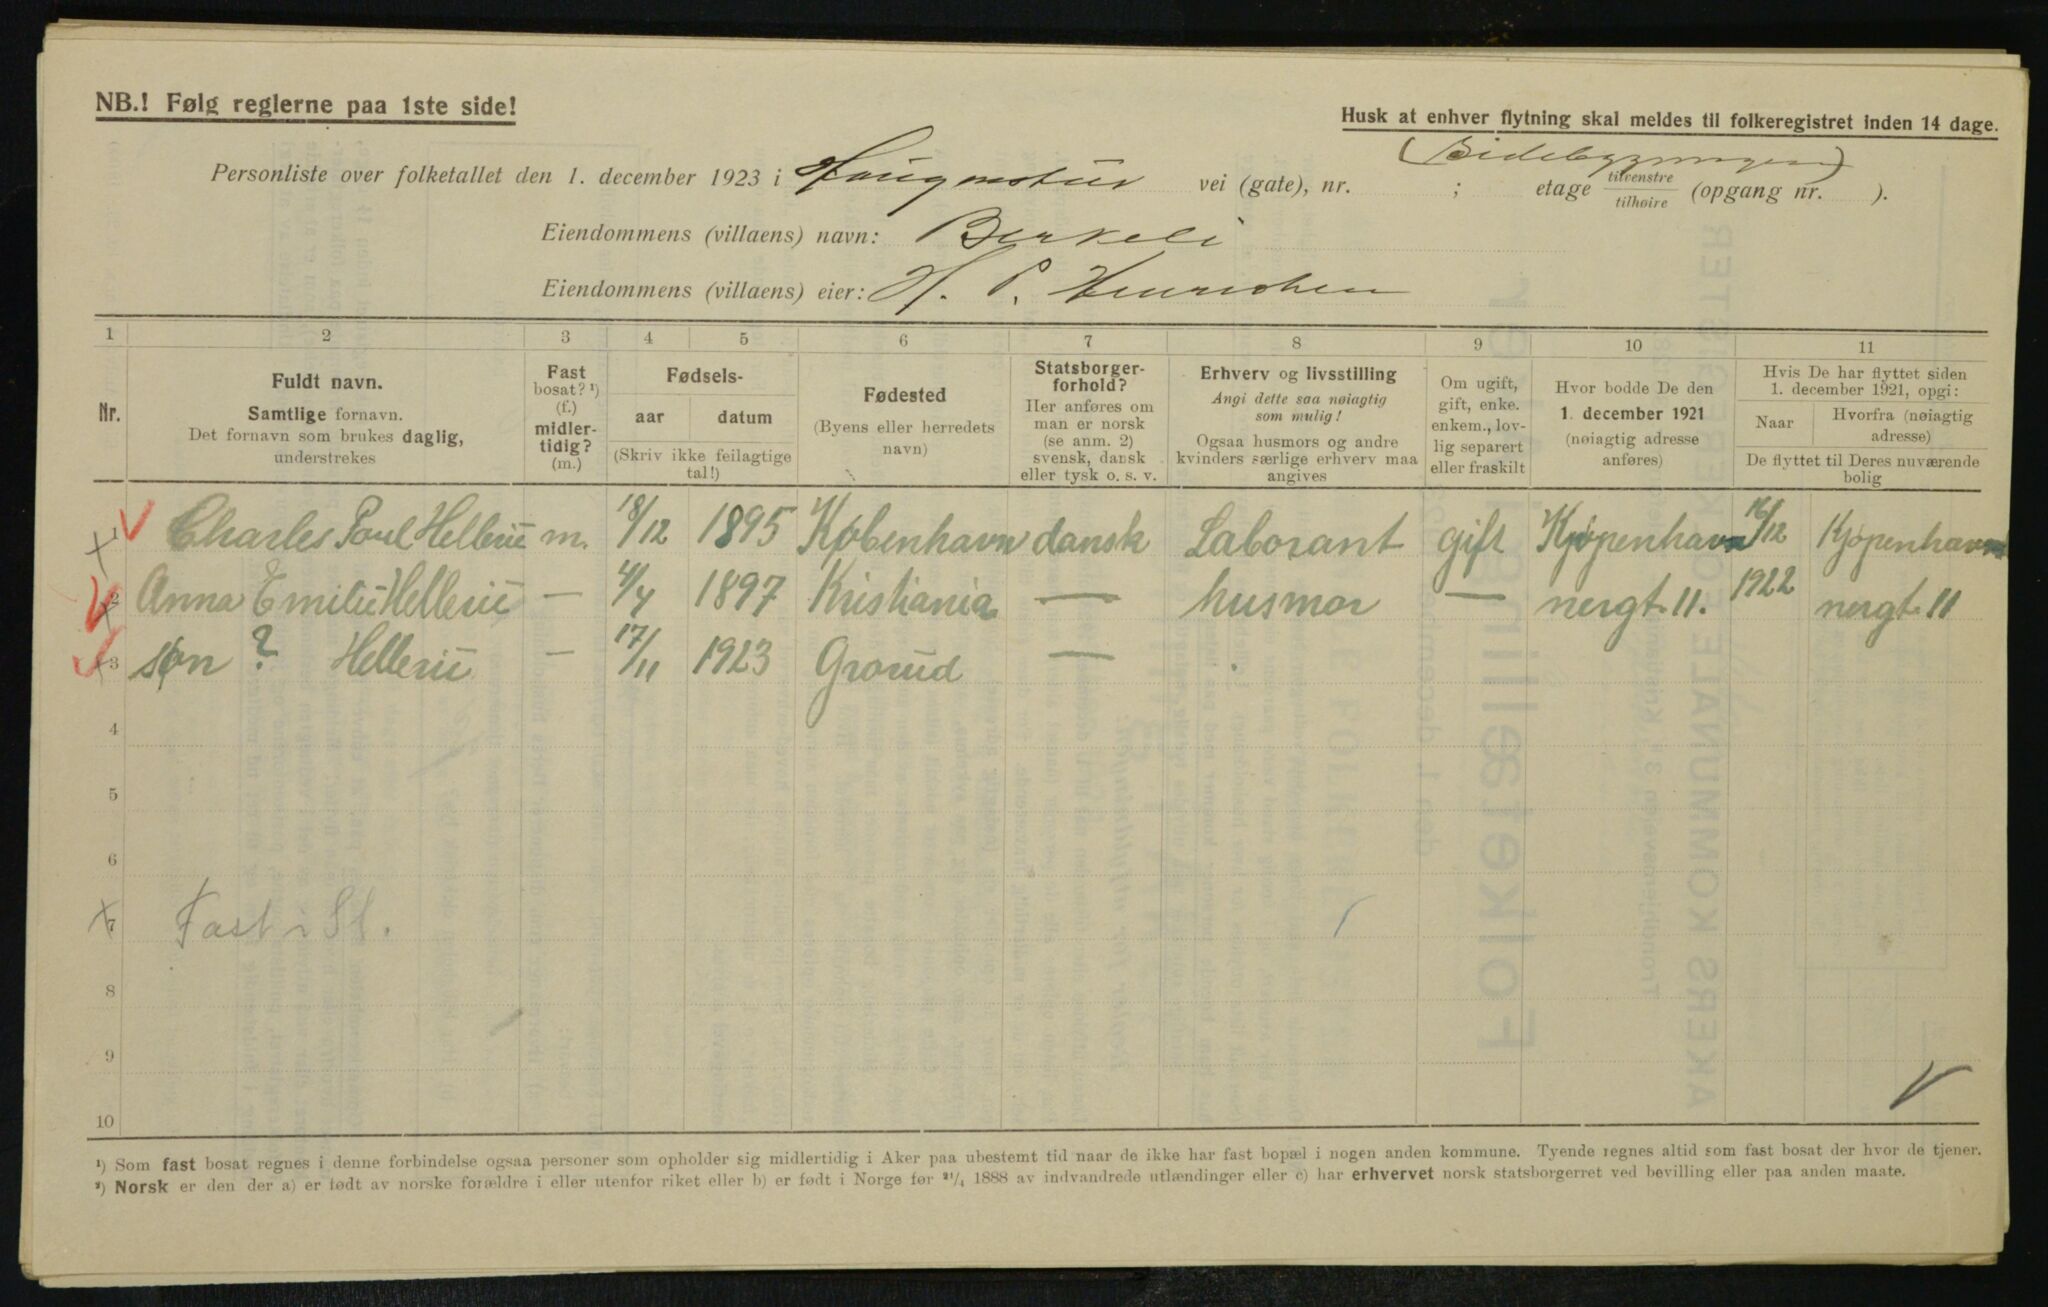 NB.! Følg reglerne paa 1ste side!
Husk at enhver flytning skal meldes til folkeregistret inden 14 dage.
(Sidebygningen)
Personliste over folketallet den 1. december 1923 i Haugenstua vei (gate), nr. ; etage tilvenstre / tilhøire (opgang nr. ).
Eiendommens (villaens) navn: Berkeli
Eiendommens (villaens) eier: H. P. Henrichsen
1 2 3 4 5 6 7 8 9 10 11
Nr.
Fuldt navn.
Samtlige fornavn.
Det fornavn som brukes daglig,
understrekes
Fast
bosat? ¹)
(f.)
midler-
tidig?
(m.)
Fødsels-
aar datum
(Skriv ikke feilagtige
tal!)
Fødested
(Byens eller herredets
navn)
Statsborger-
forhold?
Her anføres om
man er norsk
(se anm. 2)
svensk, dansk
eller tysk o. s. v.
Erhverv og livsstilling
Angi dette saa nøiagtig
som mulig!
Ogsaa husmors og andre
kvinders særlige erhverv maa
angives
Om ugift,
gift, enke.
enkem., lov-
lig separert
eller fraskilt
Hvor bodde De den
1. december 1921
(nøiagtig adresse
anføres)
Hvis De har flyttet siden
1. december 1921, opgi:
Naar Hvorfra (nøiagtig
adresse)
De flyttet til Deres nuværende
bolig
1 Charles Poul Hellerii m. 18/12 1895 København dansk Laborant gift Kjøpenhavn 16/12 Kjøpenhavn
2 Anna Emilie Hellerii — 4/4 1897 Kristiania — husmor — nergt. 11. 1922 nergt. 11
3 søn ? Hellerii — 17/11 1923 Grorud —
4
5
6
7 Fast i St.
8
9
10
¹) Som fast bosat regnes i denne forbindelse ogsaa personer som opholder sig midlertidig i Aker paa ubestemt tid naar de ikke har fast bopæl i nogen anden kommune. Tyende regnes altid som fast bosat der hvor de tjener.
²) Norsk er den der a) er født av norske forældre i eller utenfor riket eller b) er født i Norge før ²¹/₄ 1888 av indvandrede utlændinger eller c) har erhvervet norsk statsborgerret ved bevilling eller paa anden maate.